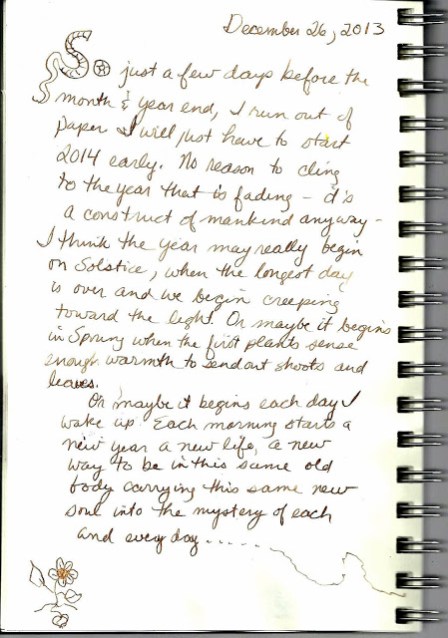 December 26, 2013
So just a few days before the
month & year end, I run out of
paper I will just have to start
2014 early. No reason to cling
to the year that is fading - it's
a construct of mankind anyway -
I think the year may really begin
on Solstice, when the longest day
is over and we begin creeping
toward the light. Or maybe it begins
in Spring when the first plants sense
enough warmth to send out shoots and
leaves.
Or maybe it begins each day I
wake up. Each morning starts a
new year a new life, a new
way to be in this same old
body carrying this same new
soul into the mystery of each
and every day .....